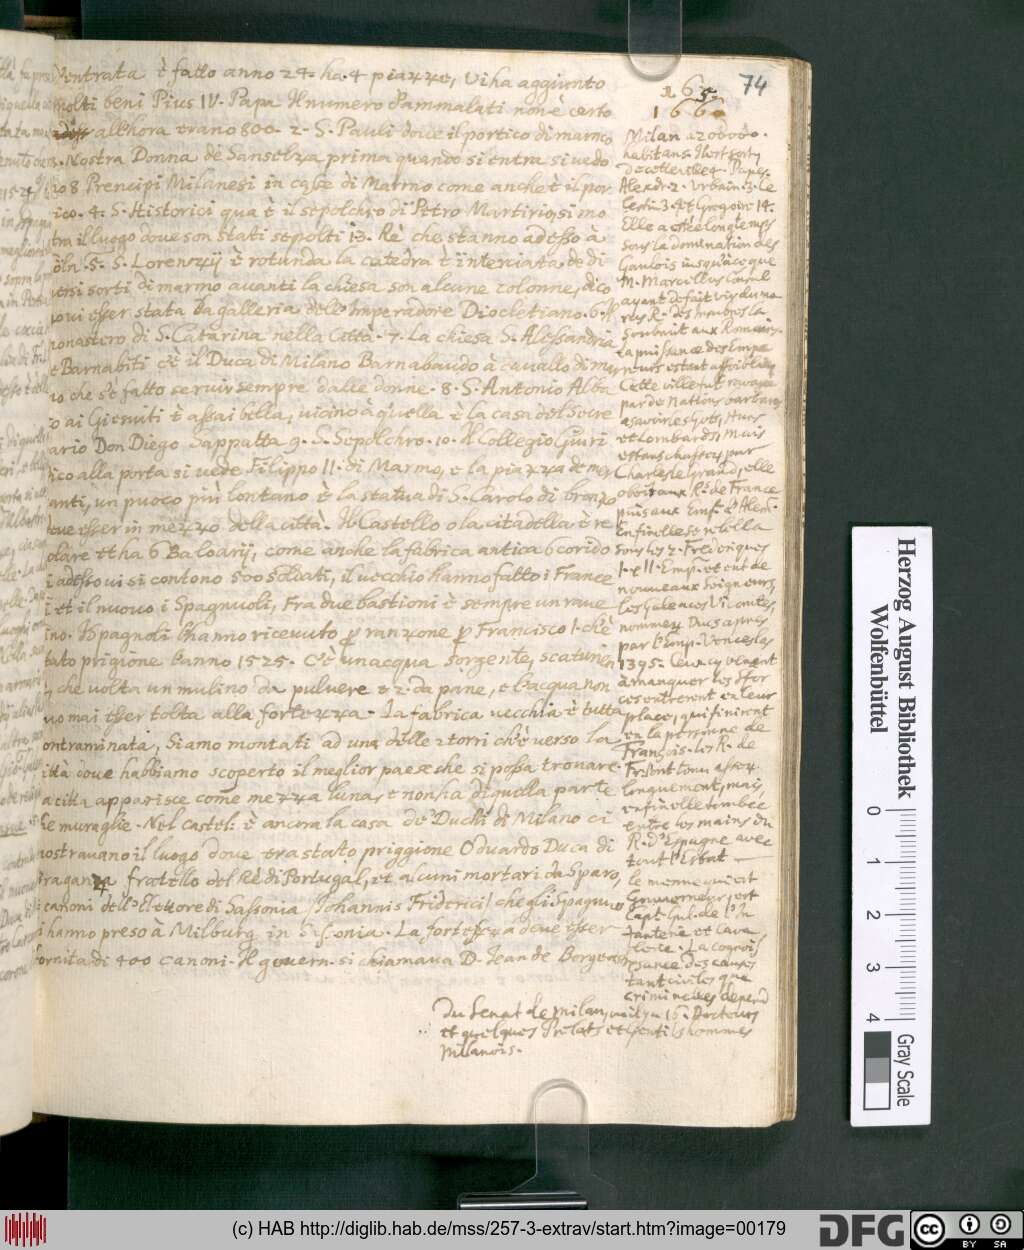 74
165
1660
l'entrata è fatto anno 24. ha. 4 piazze, vi ha aggiunto
molti beni Pius IV. Papa Il numero d'ammalati non è certo
all'hora erano 800. 2. S. Pauli dove il portico di marmo
3. Nostra Donna de Sanselza prima quando si entra si vedo
no 8 Prencipi Milanesi in cape di Marmo come anche è il por
tico. 4. S. Historici qua è il sepolchro di Petro Martirio, si mo
stra il luogo dove son stati sepolti i 3. Rè che stanno adesso à
Cöln. 5. S. Lorenzij è rotunda la catedra è interiata de di
versi sorti di marmo avanti la chiesa son alcune colonne, dico
no vi esser stata la galleria dell'Imperadore Diocletiano. 6. Il
monastero di S. Catarina nella Città. 7. La chiesa S. Alessandria
e Barnabiti c'è il Duca di Milano Barnabaudo à cavallo di mar
mo che s'è fatto servir sempre dalle donne. 8. S. Antonio Alba
to ai Giesuiti è assai bella, vicino à quella è la casa del Secre
tario Don Diego Sappatta 9. S. Sepolchro. 10. Il Collegio Giuri
dico alla porta si vede Filippo II. di Marmo, e la piazza de mer
canti, un puoco più lontano è la statua di S. Carolo di bronzo
deve esser in mezzo della città. Il Castello o la citadella è re
golare et ha 6 Baloarij, come anche la fabrica antica 6 corido
i adesso vi si contono 500 soldati, il vecchio hanno fatto i France
si et il nuovo i Spagnuoli, Fra due bastioni è sempre un rave
lino. Spagnoli l'hanno ricevuto p ranzone p Francisco I. ch'è
stato prigione l'anno 1525. C'è un acqua sorgente, scaturien
te, che volta un mulino da pulvere e 2. da pane, e l'acqua non
può mai esser tolta alla fortezza. La fabrica vecchia è tutta
contraminata, Siamo montati ad una delle 2 torri ch'è verso la
città dove habbiamo scoperto il meglior paese che si possa trovare.
la citta apparisce come mezza luna, e non ha di quella parte
che muraglie. Nel Castel: è ancora la casa de' Duchi di Milano ci
mostravano il luogo dove era stato priggione Oduardo Duca di
Braganza fratello del Rè di Portugal, et alcuni mortari da sparo,
e canoni dell'Elettore di Sassonia /Johannis Friderici/ che gli Spagnuo
li hanno preso à Milburg in Sassonia. La fortezza deve esser
fornita di 400 canoni. Il govern. si chiamava D. Jean de Borgens
Milan a 200000.
habitans. Il est sorty
de celle ville 4. Papes
Alexdr. 2. Urbain. 3. Ce
lestin. 3. et Gregoire 14.
Elle a esté longtemps
sous la domination des
Gaulois iusqu'à ce que
M. Marcellus Cons.le
ayant defait Virduma
rus R. des Insubres la
soubmit aux Romains.
La puissance des Empe
reurs estant affoiblie,
Cette ville fut ravagée
par de Nations barbares
a savoir les Gots, Huns
et Lombards, mais
estans chassez par
Charles le grand, elle
obeit aux R. de France
puis aux Emp. d'Alem.
Enfin elle se rebella
sous les 2. Frederiques
I. et II. Emp. et eut de
nouveaux Seigneurs,
les Galeaces Vicontes,
nommez Ducs apres
par l'Emp. Venceslas
1395. Ceux cy vlaent
à manquer les Sfor
ces entrerent en leur
place, qui finirent
en la personne de
François. Les R. de
Fr. l'ont tenu assez
longuement, mais
enfin elle tombée
entre les mains du
R. d'Espagne avec
tout l'Estat
le mennequi est
Gouverneur, est
Capt. Gnl. de l'In
fanterie et Cava
llerie. La cognois
sance des causes
tant civiles que
criminelles depend
Du Senat de Milan, où il y a 15. Docteurs
et quelques Prelats et Gentilshommes
Milanois.
Herzog August Bibliothek
Wolfenbüttel
0 1 2 3 4
Gray Scale
(c) HAB http://diglib.hab.de/mss/257-3-extrav/start.htm?image=00179
DFG
cc BY SA